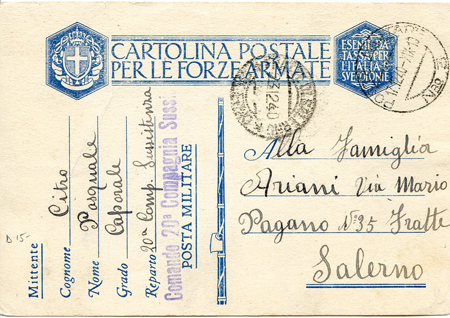 CARTOLINA POSTALE
PER LE FORZE ARMATE
ESENTE DA
TASSA PER
L'ITALIA
E SVE COLONIE
23.12.40
Alla Famiglia
Ariani Via Mario
Pagano N° 35 Fratte
Salerno
Mittente
Cognome Citro
Nome Pasquale
Grado Caporale
Reparto 20ª Comp. Sussistenza
Comando 20ª Compagnia Sussi
POSTA MILITARE
D 15-